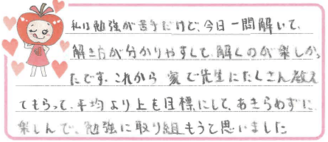 私は勉強が苦手だけど、今日一問解いて、
解き方が分かりやすくて、解くのが楽しかっ
たです。これから 夏で先生にたくさん教え
てもらって、平均より上を目標にして、あきらめずに
楽しんで、勉強に取り組もうと思いました